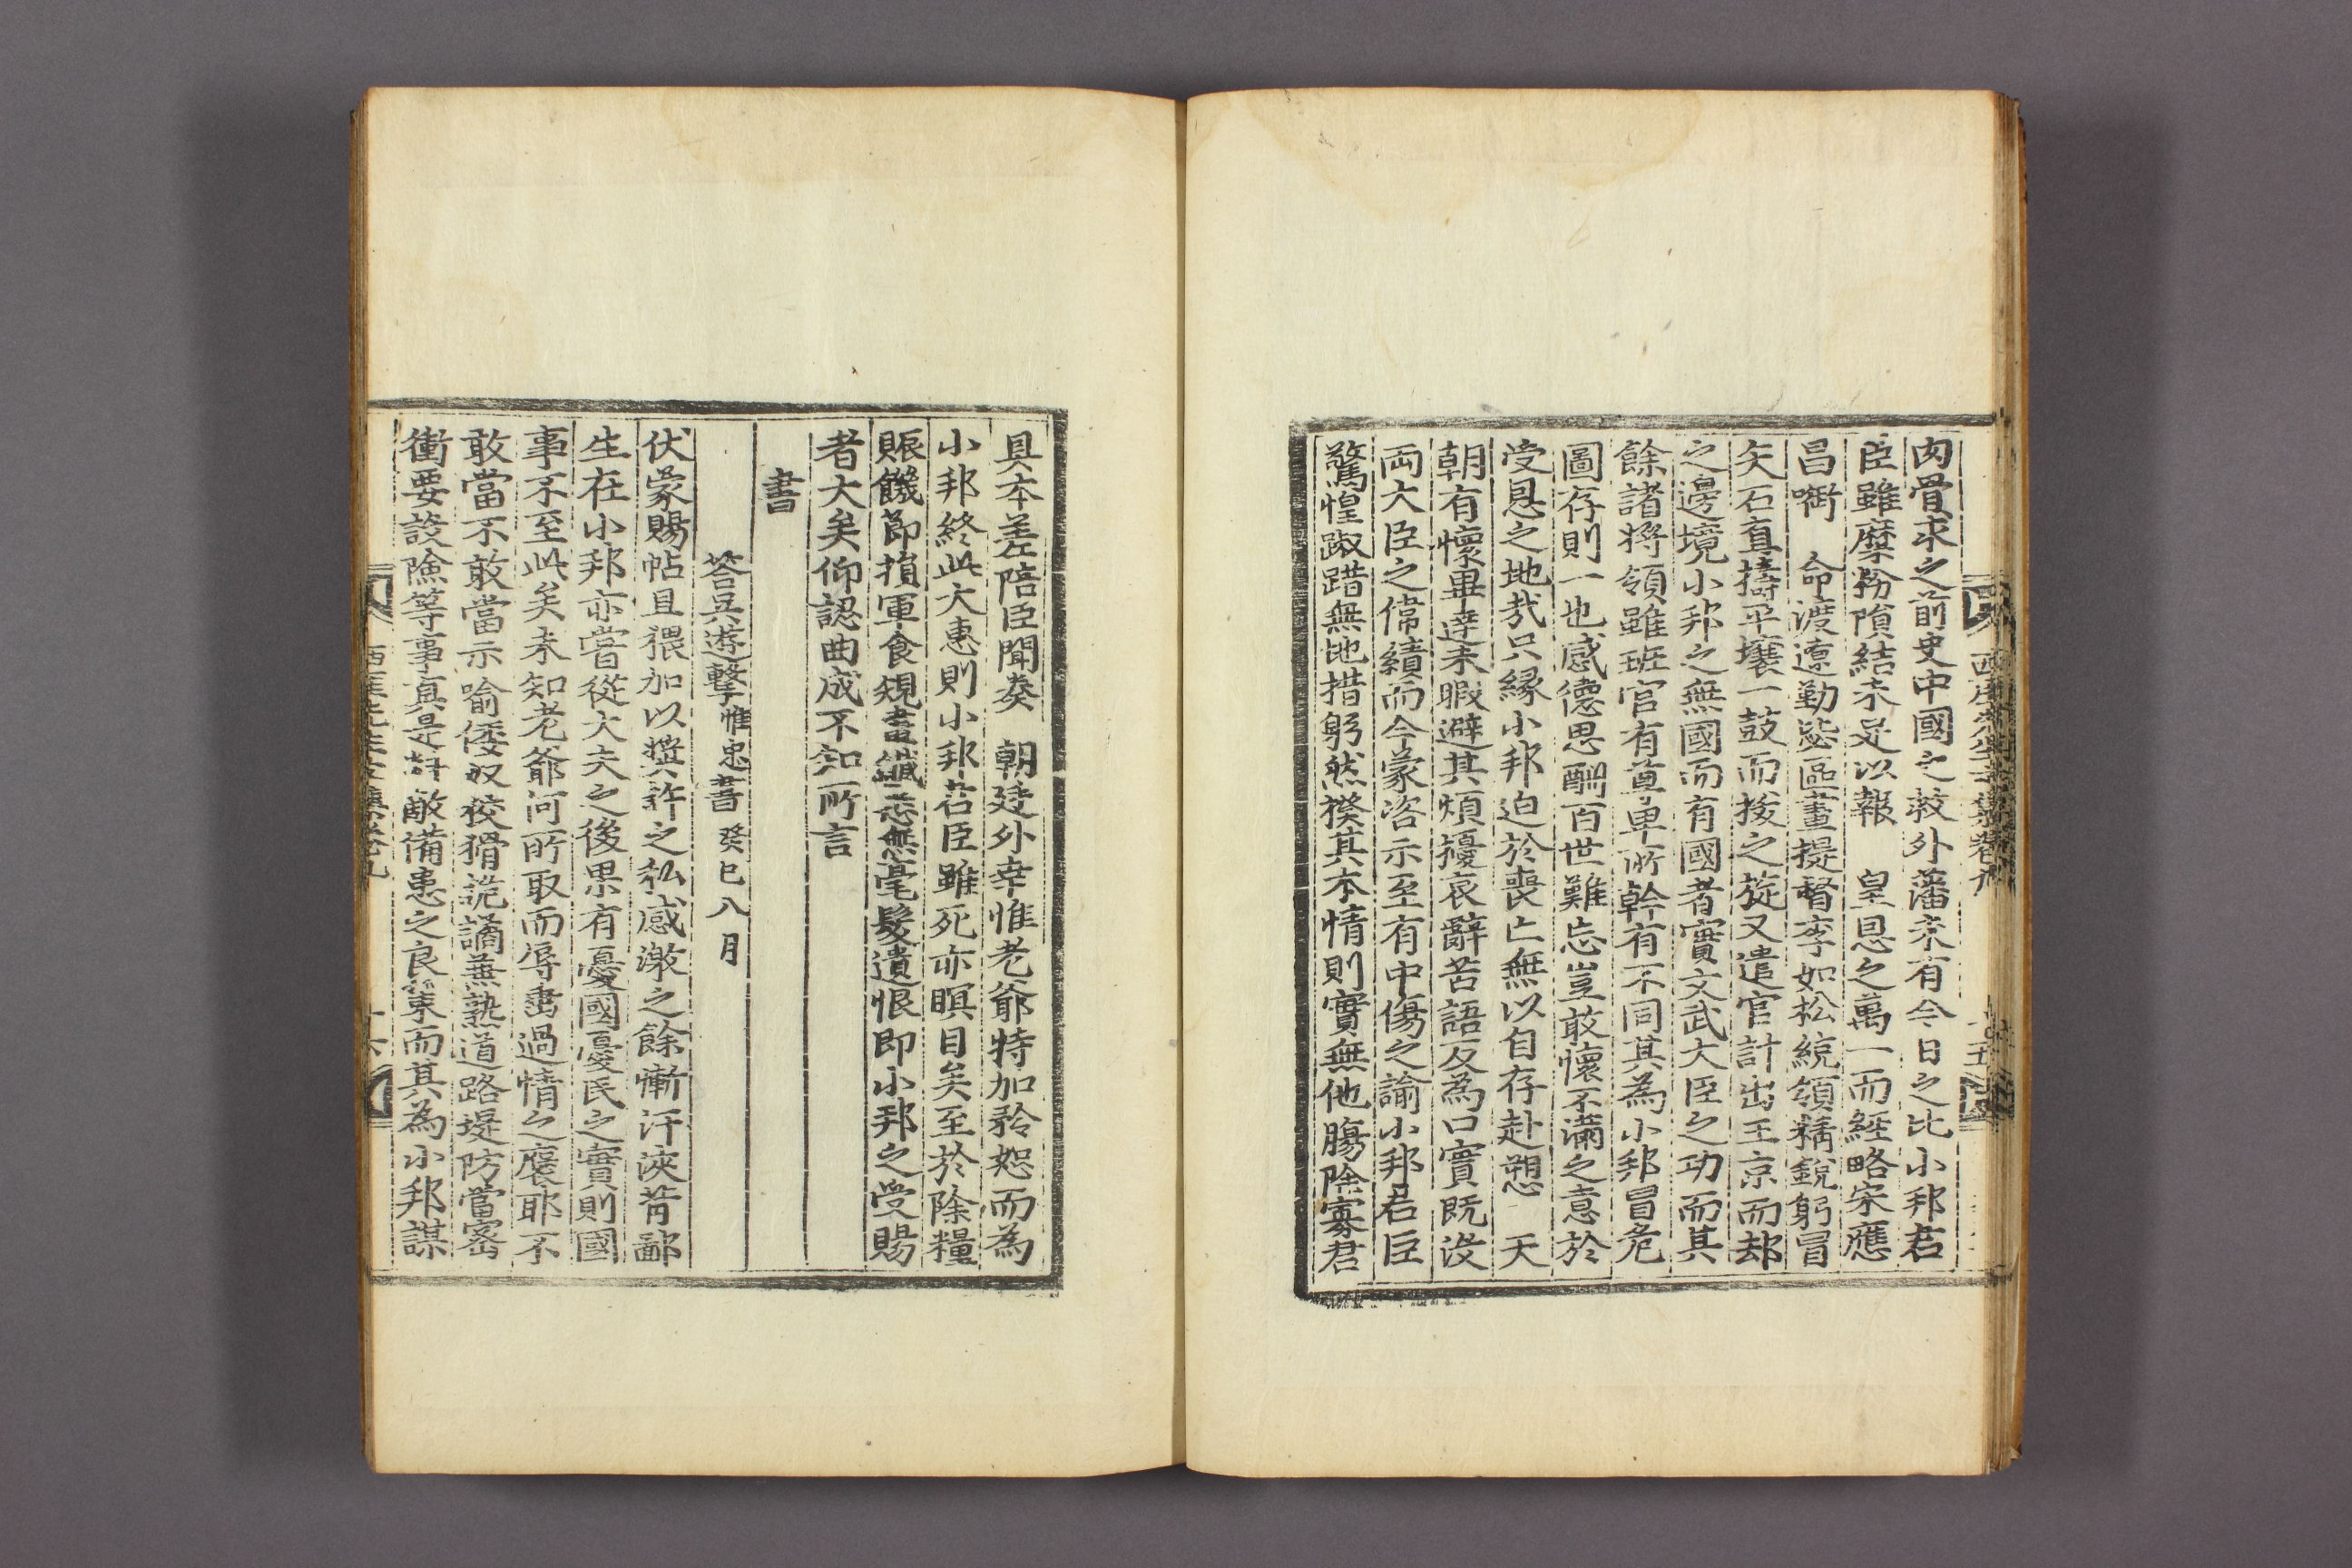 肉骨求之前史中國之救外藩未有今日之比小邦君
臣雖糜粉隕結未足以報 皇恩之萬一而經略宋應
昌啣 命渡遼勤毖區畫提督李如松統領精銳躬冒
矢石直擣平壤一鼓而拔之旋又遣官計出王京而却
之邊境小邦之無國而有國者實文武大臣之功而其
餘諸將領雖班官有尊卑所幹有不同其為小邦冒危
圖存則一也感德思酬百世難忘豈敢懷不滿之意於
受恩之地哉只緣小邦迫於喪亡無以自存赴愬 天
朝有懷畢達未暇避其煩擾哀辭苦語反為口實既沒
兩大臣之偉績而今蒙咨示至有中傷之諭小邦君臣
驚惶踧踖無地措躬然揆其本情則實無他膓除寡君
西厓先生文集卷九
十五
具本差陪臣聞奏 朝廷外幸惟老爺特加矜恕而為
小邦終此大惠則小邦君臣雖死亦瞑目矣至於除糧
賑饑節損軍食規畫纖悉無毫髮遺恨即小邦之受賜
者大矣仰認曲成不知所言
書
答吳遊擊惟忠書 癸巳八月
伏蒙賜帖且猥加以奬許之私感激之餘慚汗浹背鄙
生在小邦亦嘗從大夫之後果有憂國憂民之實則國
事不至此矣未知老爺何所取而辱崇過情之褒耶不
敢當不敢當示喻倭奴狡猾詭譎蕪熟道路堤防當密
衝要設險等事真是討敵備患之良策而其為小邦謀
西厓先生文集卷九
十六